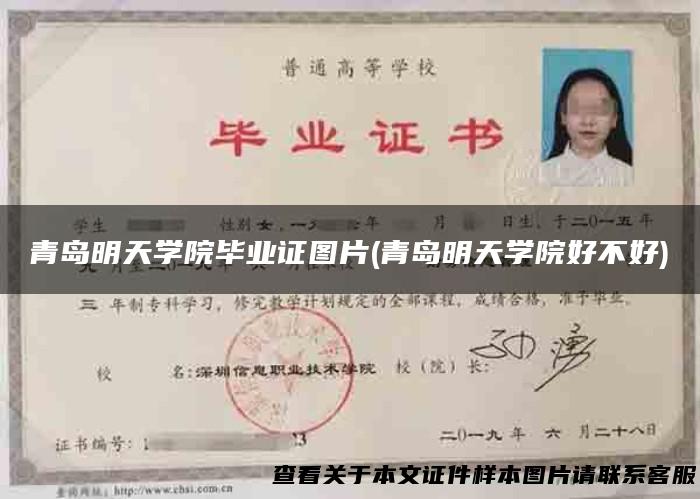 普通高等学校
毕业证书
学生 性别 女，一 年 月 日生，于二〇一五年
青岛明天学院毕业证图片(青岛明天学院好不好)
三 年制专科学习，修完教学计划规定的全部课程，成绩合格，准予毕业。
校 名：深圳信息职业技术学院 校（院）长：
证书编号：1 03
二〇一九年 六 月二十八日
查看关于本文证件样本图片请联系客服
查询网址：http://www.chsi.com.cn